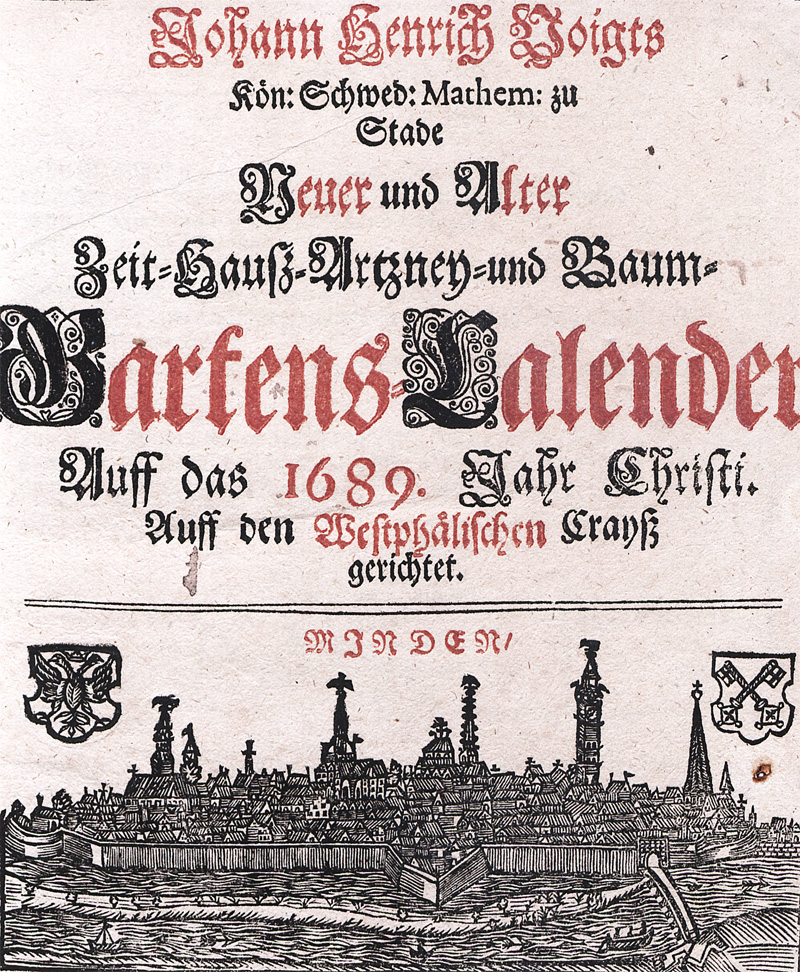 Johann Henrich Voigts
Kön: Schwed: Mathem: zu
Stade
Neuer und Alter
Zeit-Hauß-Artzney-und Baum-
Gartens-Calender
Auff das 1689. Jahr Christi.
Auff den Westphälischen Crayß
gerichtet.
MINDEN/